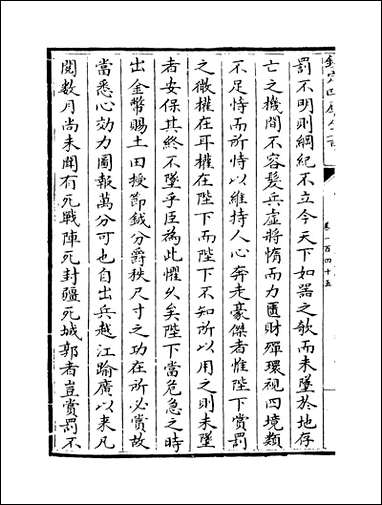 欽定四庫全書
卷一百四十五
罰不明則綱紀不立今天下如器之欹而未墜於地存
亡之機間不容髮兵虛將惰而力匱財殫環視四境類
不足恃而所恃以維持人心奔走豪傑者惟陛下賞罰
之微權在耳權在陛下而陛下不知所以用之則未墜
者安保其終不墜乎臣為此懼乆矣陛下當危急之時
出金幣賜土田授節鉞分爵秩尺寸之功在所必賞故
當悉心効力圖報萬分可也自出兵越江踰廣以來凡
閲數月尚未聞有死戰陣死封疆死城郭者豈賞罰不